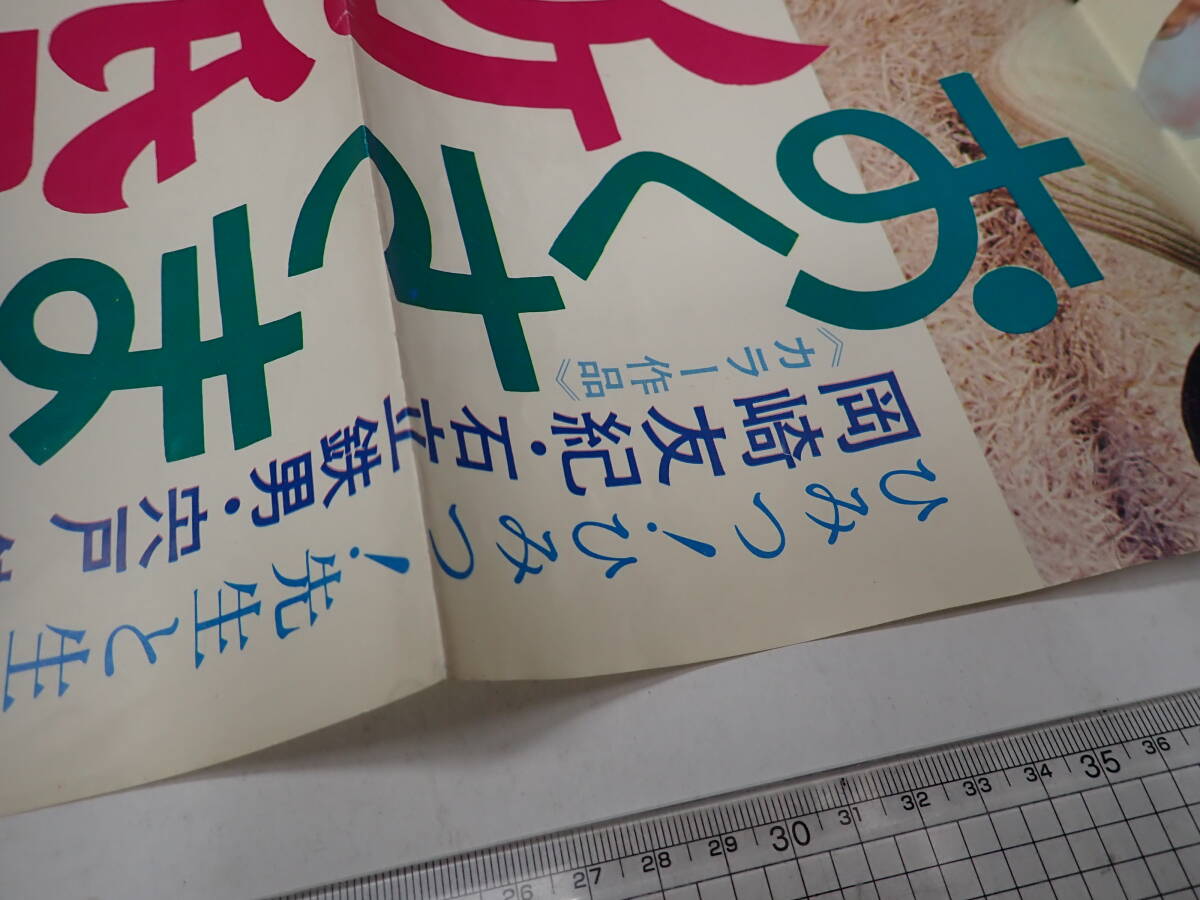 ひみつ!ひみつ!先生と生
岡崎友紀・石立鉄男・宍戸
《カラー作品》
おくさま
26 27 28 29 30 31 32 33 34 35 36